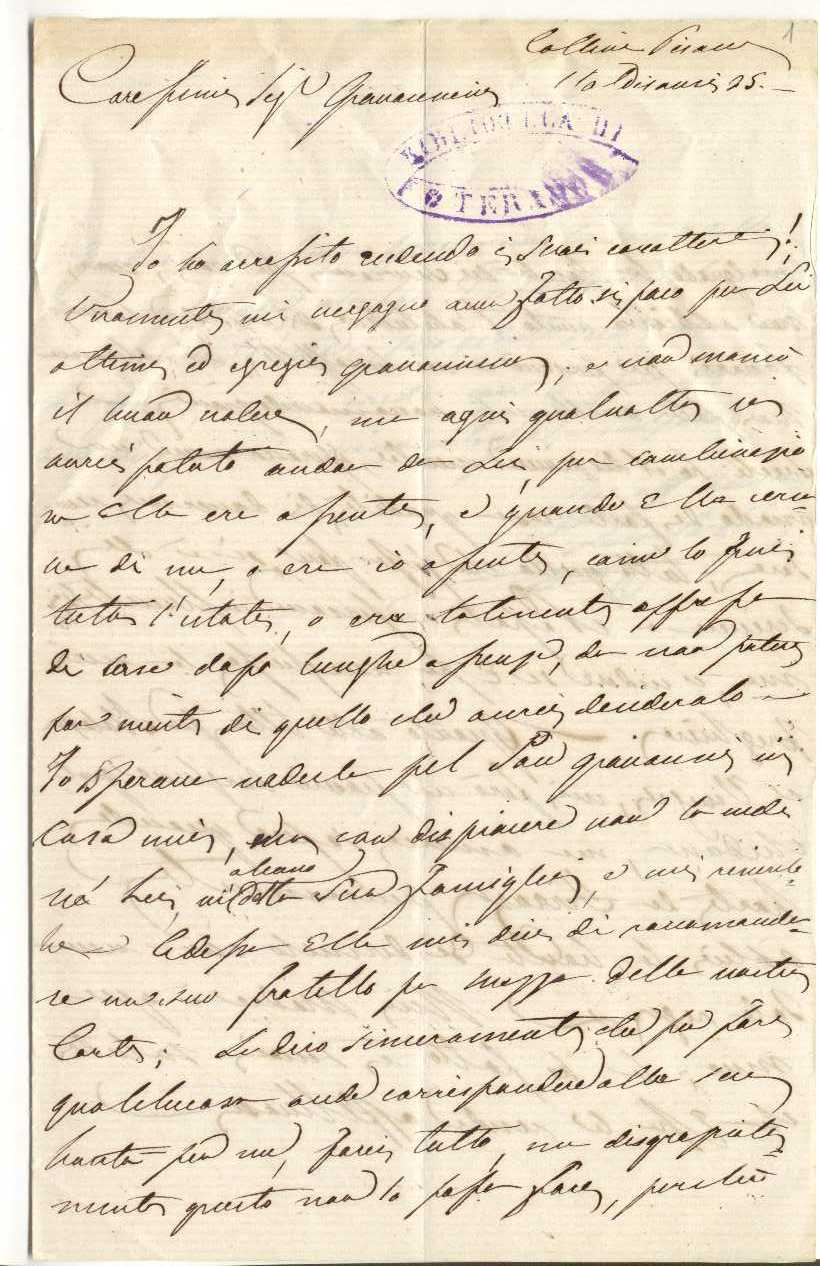 1
Colline Pisane
10 25.
Carissimo Sigr Giovannini
BIBLIOTECA DI
TERAMO
Io ho arrossito vedendo i suoi caratteri!
Veramente mi vergogno aver fatto sì poco per Lei
ottimo ed egregio Giovannini; e non mancò
il buon volere, ma ogni qualvolta io
avrei potuto andar da Lei, per combinazio
ne Ella era assente, e quando Ella veni-
va di me, o era io assente, come lo fui
tutta l'estate, o era talmente
di cose dopo lunghe assenze, da non poter
far niente di quello che avrei desiderato —
Io sperava vederla pel San Giovanni in
casa mia, ma con dispiacere non la vidi
né Lei, né alcuno della Sua famiglia, e mi
Adesso Ella mi dice di raccomanda-
re un suo fratello per mezzo delle nostre
Carte; Le dico sinceramente che per fare
qualche cosa onde corrispondere alla sua
bontà per me, farei tutto, ma disgraziata-
mente questo non lo posso fare, perché